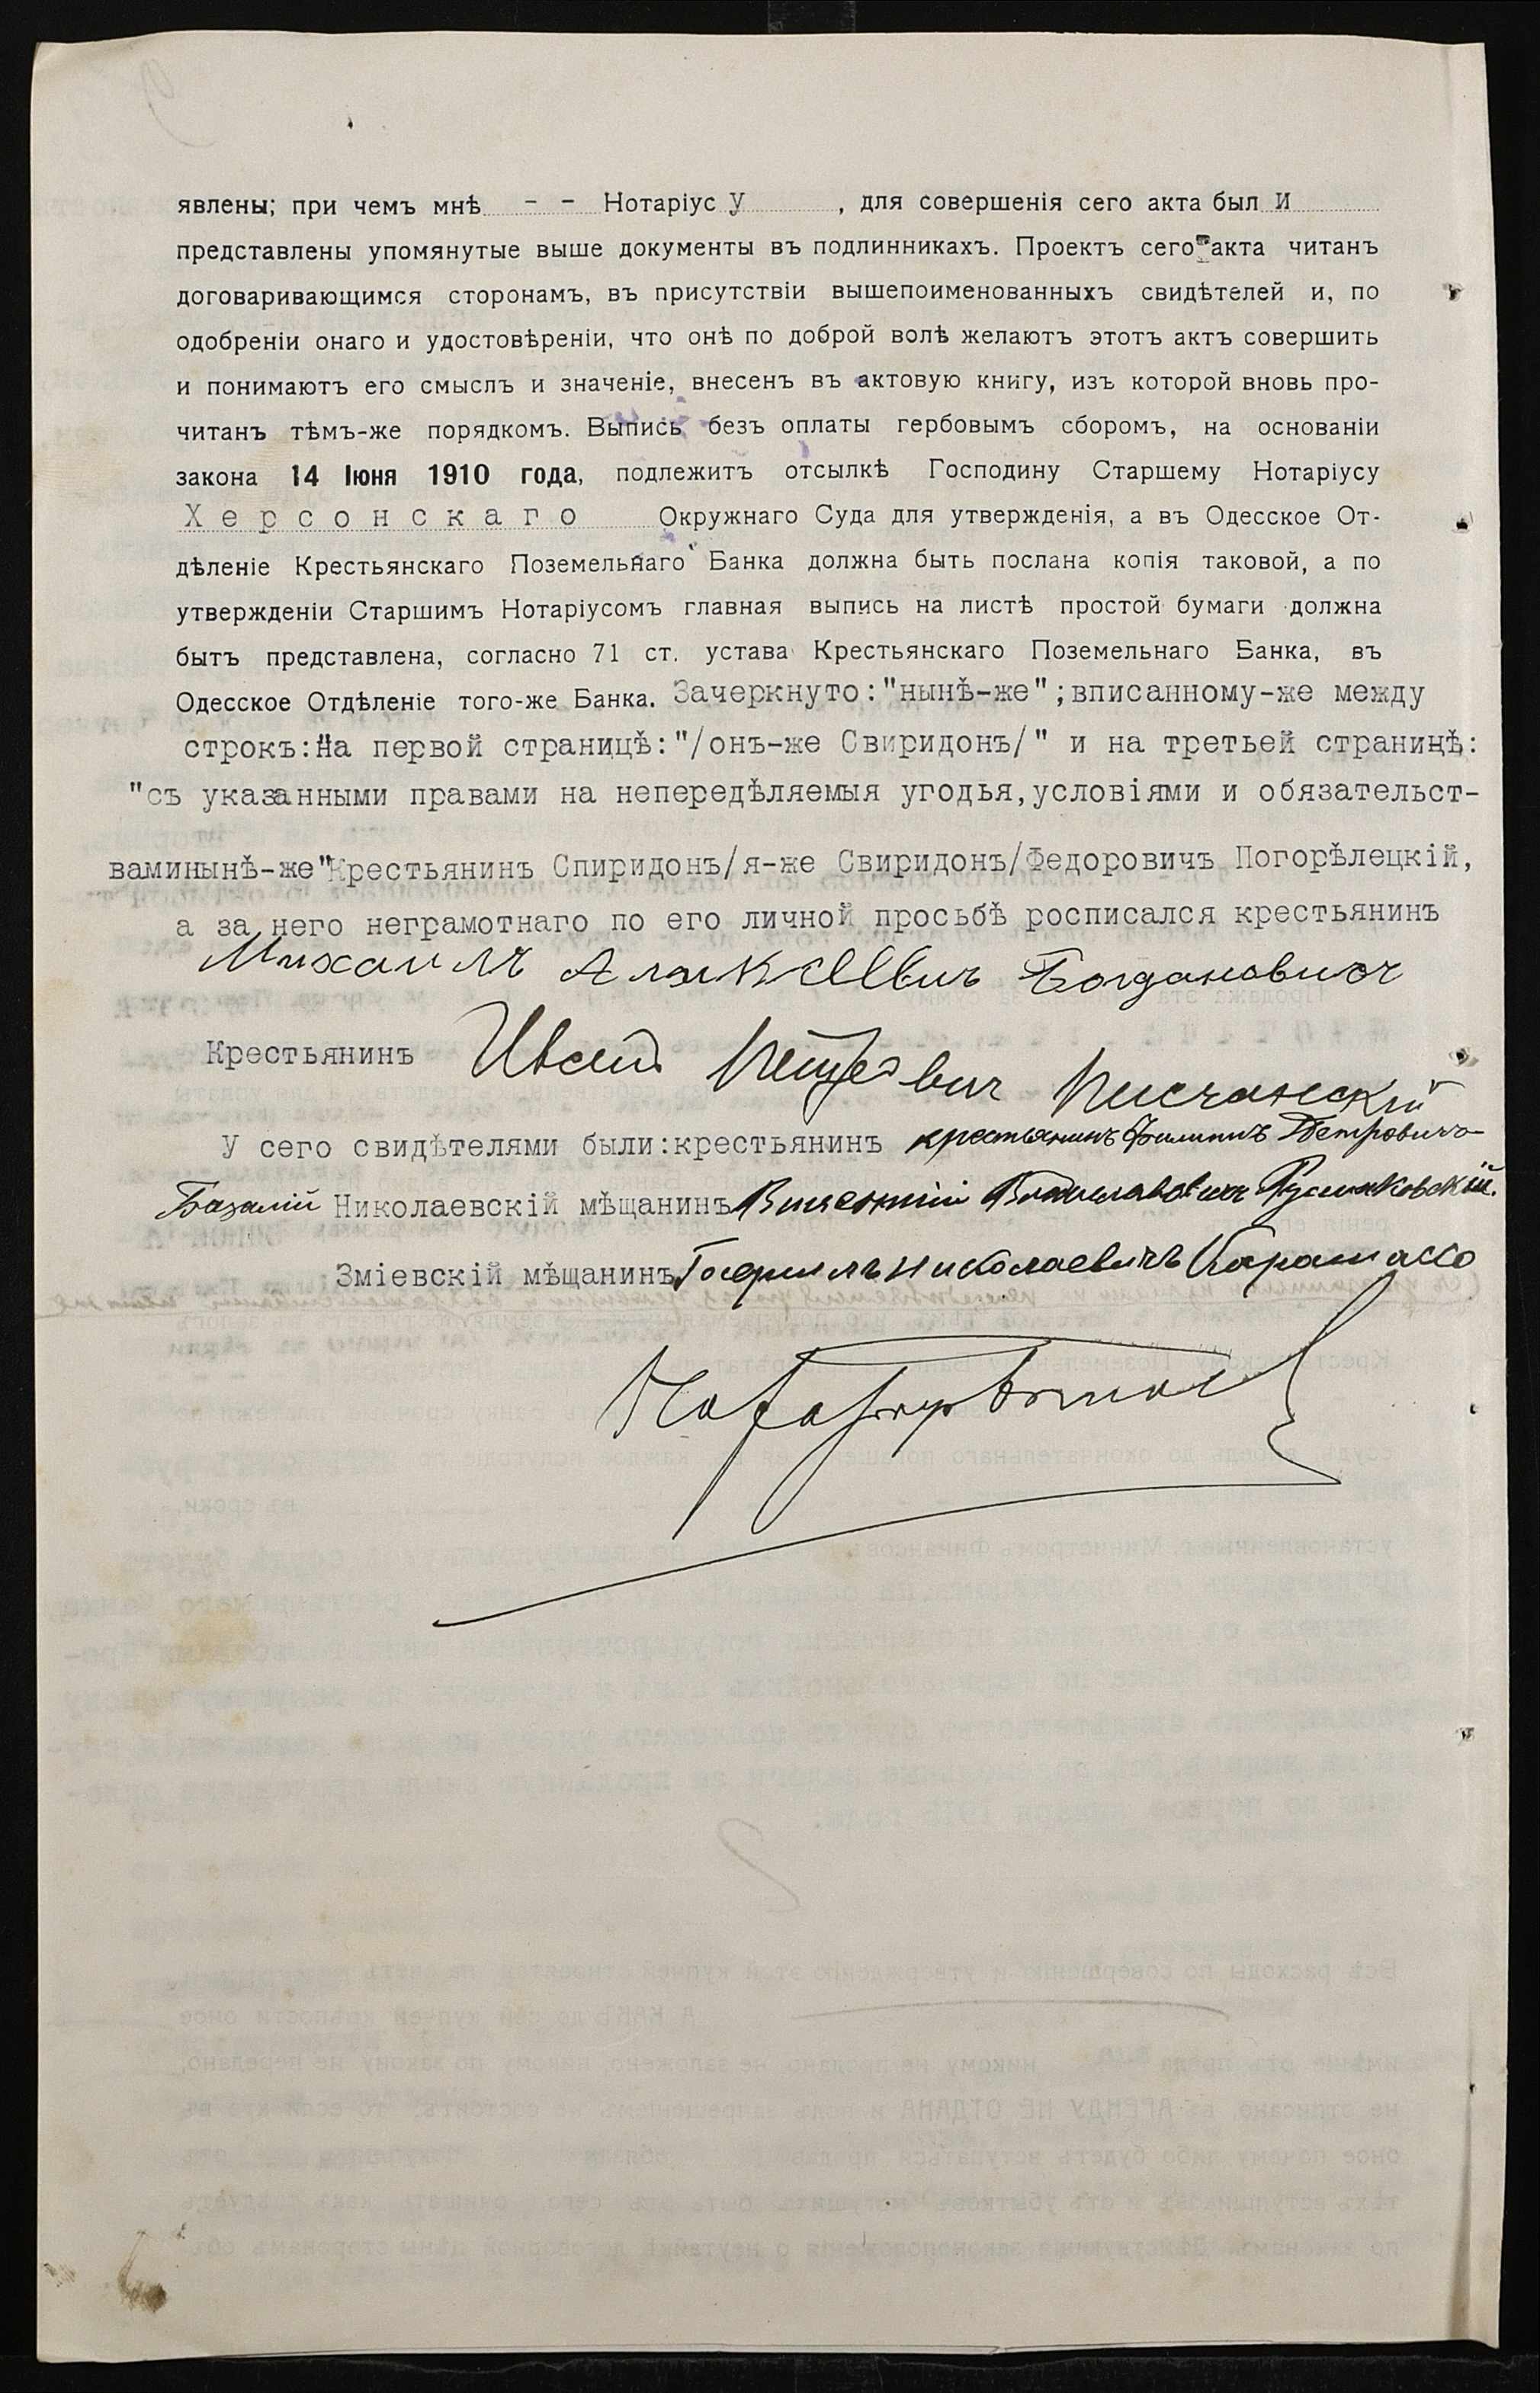 явлены; при чемъ мнѣ - - Нотаріус у , для совершенія сего акта был и
представлены упомянутые выше документы въ подлинникахъ. Проектъ сего акта читанъ
договаривающимся сторонамъ, въ присутствіи вышепоименованныхъ свидѣтелей и, по
одобреніи онаго и удостовѣреніи, что онѣ по доброй волѣ желаютъ этотъ актъ совершить
и понимаютъ его смыслъ и значеніе, внесенъ въ актовую книгу, изъ которой вновь про-
читанъ тѣмъ-же порядкомъ. Выпись безъ оплаты гербовымъ сборомъ, на основаніи
закона 14 Іюня 1910 года, подлежитъ отсылкѣ Господину Старшему Нотаріусу
Херсонскаго Окружнаго Суда для утвержденія, а въ Одесское От-
дѣленіе Крестьянскаго Поземельнаго Банка должна быть послана копія таковой, а по
утвержденіи Старшимъ Нотаріусомъ главная выпись на листѣ простой бумаги должна
бытъ представлена, согласно 71 ст. устава Крестьянскаго Поземельнаго Банка, въ
Одесское Отдѣленіе того-же Банка. Зачеркнуто:"нынѣ-же";вписанному-же между
строкъ:На первой страницѣ:"/онъ-же Свиридонъ/" и на третьей страницѣ:
"съ указанными правами на непередѣляемыя угодья,условіями и обязательст-
ваминынѣ-же"Крестьянинъ Спиридонъ/я-же Свиридонъ/Федоровичъ Погорѣлецкій,
а за него неграмотнаго по его личной просьбѣ росписался крестьянинъ
Михаилъ Алексѣевичъ Богдановичъ
Крестьянинъ Иванъ Петровичъ Писчанскій
У сего свидѣтелями были:крестьянинъ крестьянинъ Филиппъ Петровичъ
Базалій Николаевскій мѣщанинъ Викентій Владиславовичъ
Зміевскій мѣщанинъ Николаевичъ